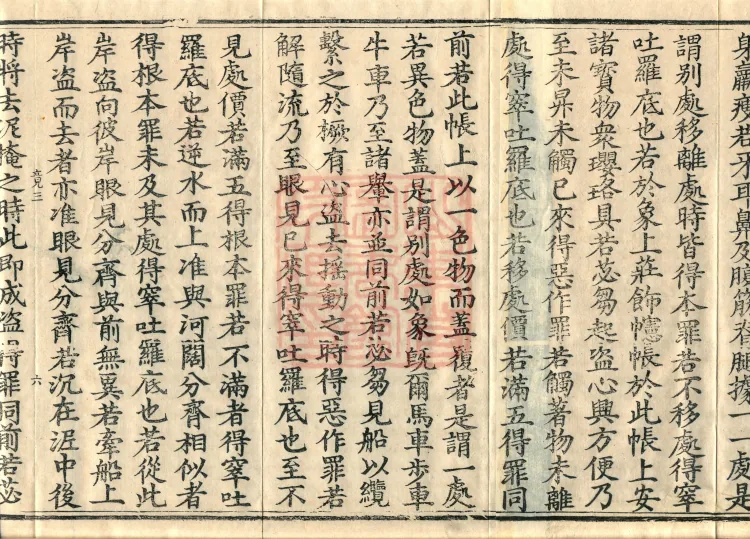 身羸瘦若牙耳鼻及腰筋脊腿據一一處是
謂別處移離處時皆得本罪若不移處得窣
吐羅底也若於象上莊飾幰帳於此帳上安
諸寶物眾瓔珞具若苾芻起盜心興方便乃
至未昇未觸已來得惡作罪若觸著物未離
處得窣吐羅底也若移處價若滿五得罪同
前若此帳上以一色物而蓋覆者是謂一處
若異色物蓋是謂別處如象既爾馬車步車
牛車乃至諸轝亦並同前若苾芻見船以纜
繫之於橛有心盜去搖動之時得惡作罪若
解隨流乃至眼見已來得窣吐羅底也至不
見處價若滿五得根本罪若不滿者得窣吐
羅底也若逆水而上准與河闊分齊相似者
得根本罪未及其處得窣吐羅底也若從此
岸盜向彼岸眼見分齊與前無異若牽船上
岸盜而去者亦准眼見分齊若沉在泥中後
竟三
六
時將去泥掩之時此即成盜得罪同前若苾